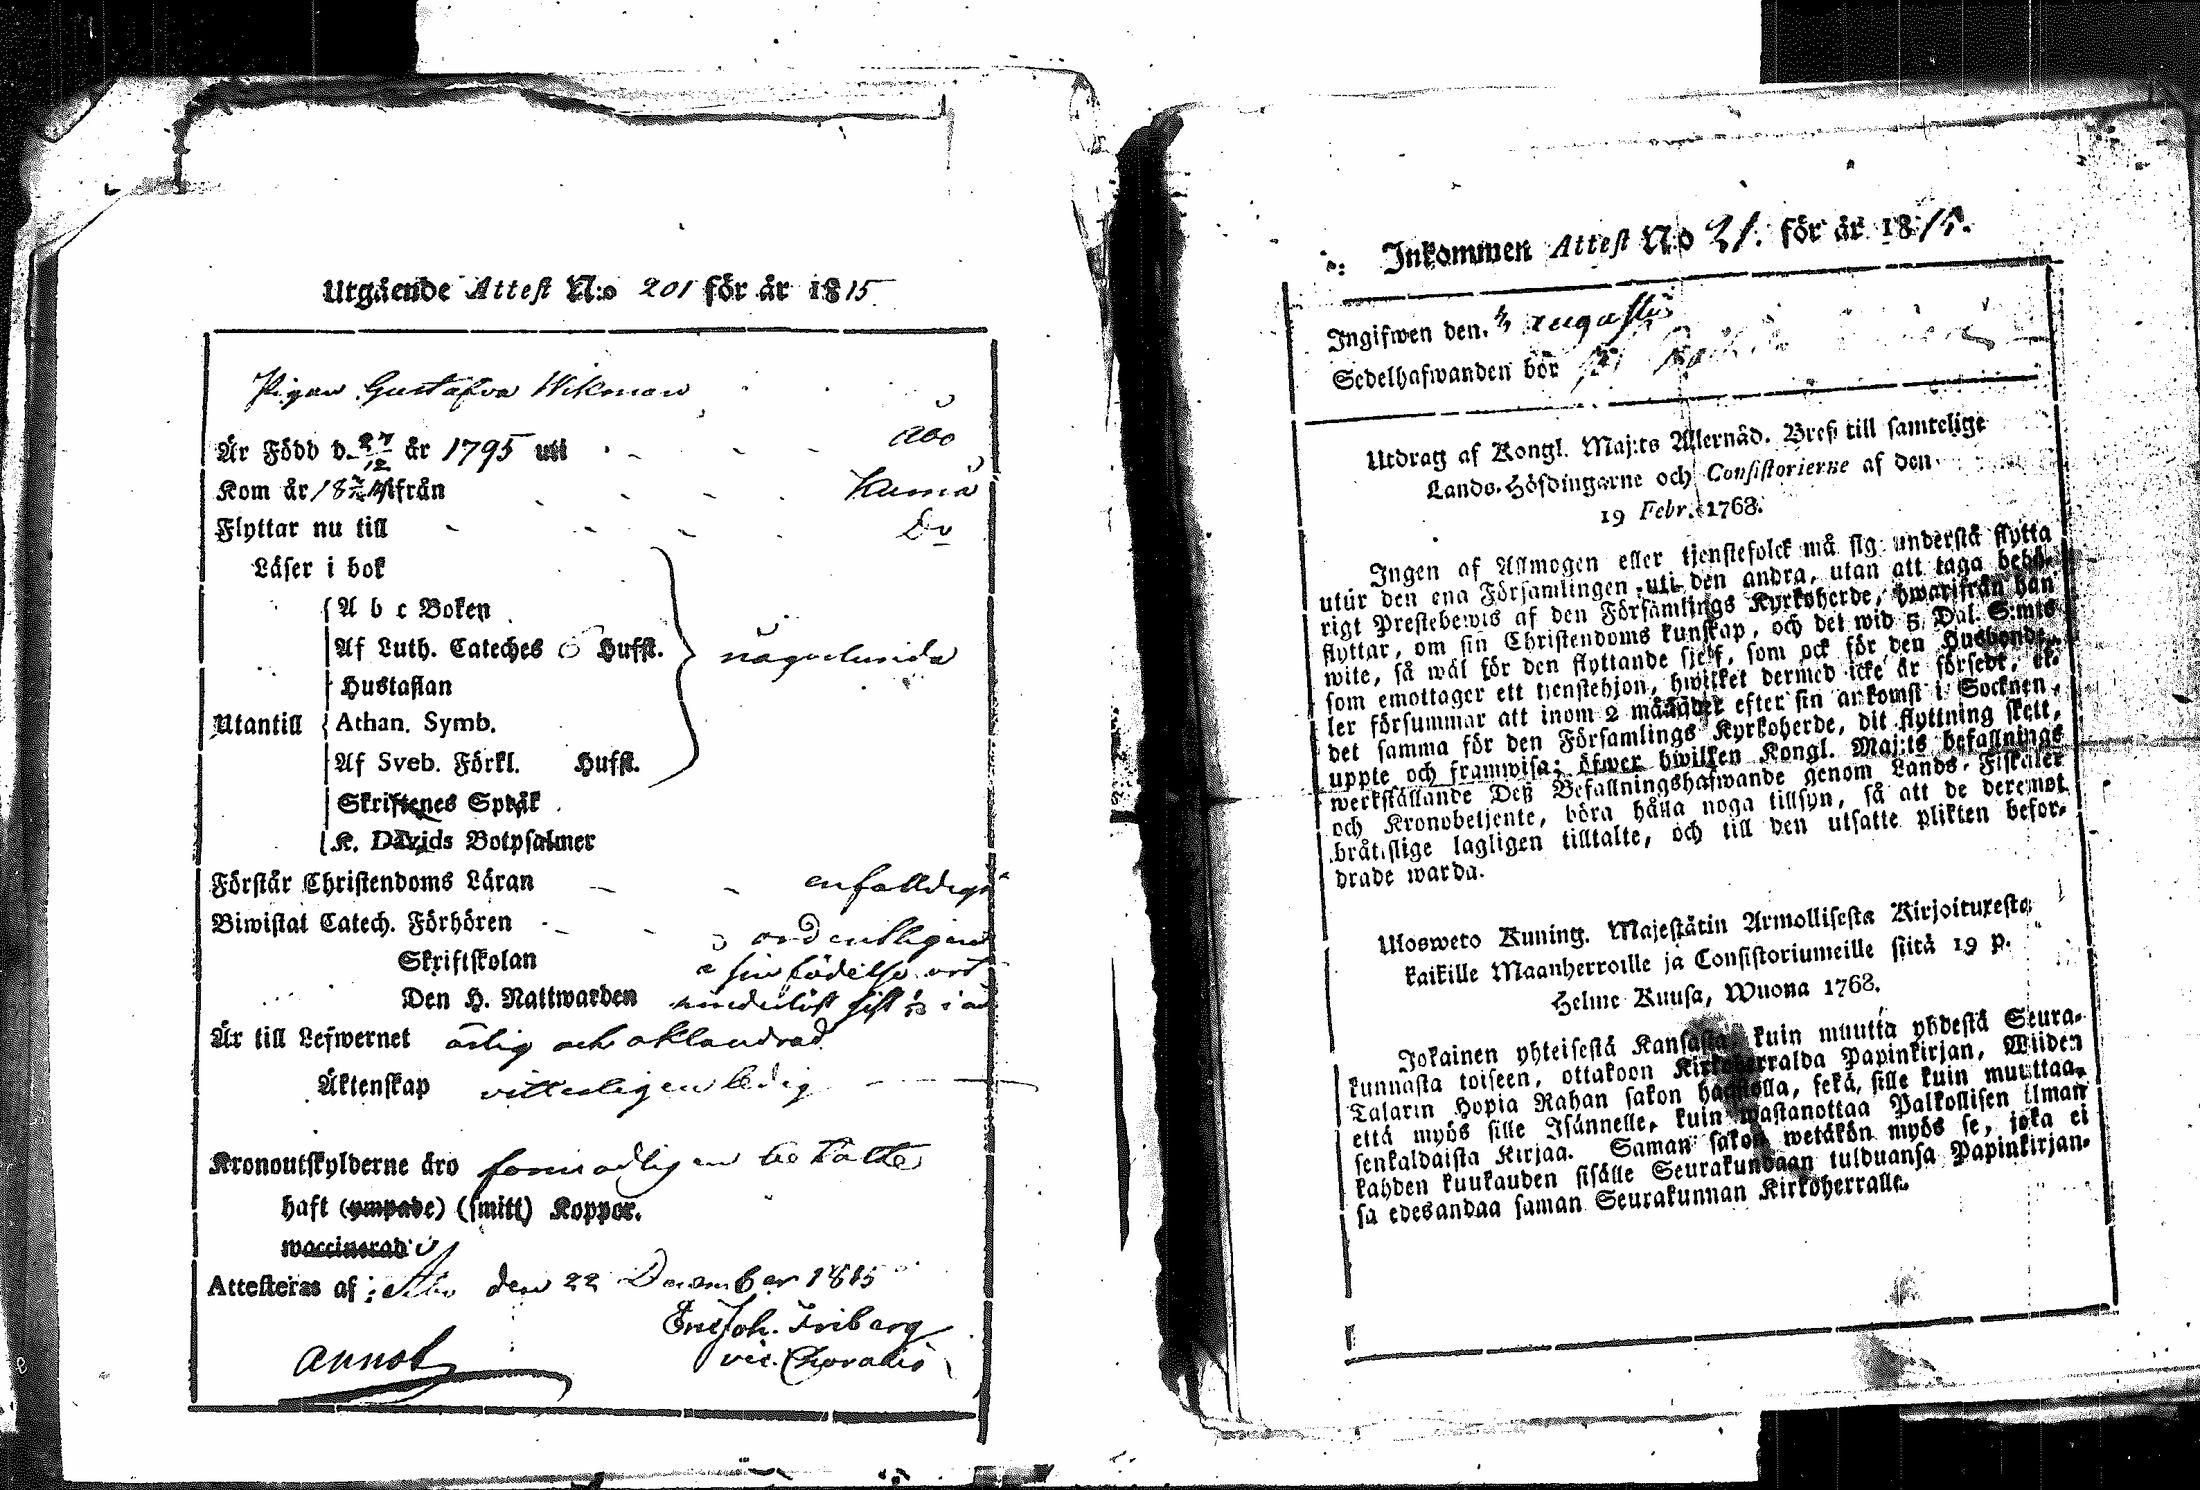 Utgående Attest N:o 201 för år 1815
Pigan Gustafva Wikman
Är Född d. 27/12 år 1795 uti Åbo
Kom år 18 ifrån Kumå
Flyttar nu till Do
Läser i bok
A b c Boken
Af Luth. Cateches Hufst.
någorlunda
Hustaflan
Utantill
Athan. Symb.
Af Sveb. Förkl. Hufst.
Skriftenes Språk
K. Davids Botpsalmer
Förstår Christendoms Läran enfalldigt
Biwistat Catech. Förhören ordentligen
Skriftskolan i sin födelse ort
Den H. Nattwarden sist i år
Är till Lefwernet ärlig och oklandrad
Äktenskap vitterligen ledig
Kronoutskylderne äro betalte
haft (ympade) (smitt) Koppor.
waccinerad
Attesteras af: Åbo den 22 December 1815
Eric Joh. Friberg
annot
Inkommen Attest No 21. för år 1815.
Ingifwen den. Augusti
Sedelhafwanden bor
Utdrag af Kongl. Maj:ts Allernåd. Bref till samtelige
Lands-Höfdingarne och Consistorierne af den
19 Febr. 1768.
Ingen af Allmogen eller tjenstefolck må sig understå flytta
utur den ena Församlingen uti den andra, utan att taga behö-
rigt Prestebewis af den Församlings Kyrkoherde, hwarifrån han
flyttar, om sin Christendoms kunskap, och det wid 5 Dal. S:mts
wite, så wäl för den flyttande sjelf, som ock för den Husbonde,
som emottager ett tjenstehjon, hwilket dermed icke är försedt, el-
ler försummar att inom 2 månader efter sin ankomst i Socknen,
det samma för den Församlings Kyrkoherde, dit flyttning skett,
uppte och framwisa; öfwer hwilken Kongl. Maj:ts befallnings
werkställande Deß Befallningshafwande genom Lands-Fiskaler
och Kronobetjente, böra hålla noga tillsyn, så att de deremot
bråtslige lagligen tilltalte, och till den utsatte plikten befor-
drade warda.
Ulosweto Kuning. Majestätin Armollisesta Kirjoituxesta
kaikille Maanherroille ja Consistoriumeille siitä 19 p.
Helme Kuusa, Wuona 1768.
Jokainen yhteisestä Kansasta, kuin muutta yhdestä Seura-
kunnasta toiseen, ottakoon Kirkoherralda Papinkirjan, Wiiden
Talarin Hopia Rahan sakon haastolla, sekä, sille kuin muuttaa,
että myös sille Isännelle, kuin wastanottaa Palkollisen ilman
senkaldaista Kirjaa. Saman sakon wetäkön myös se, joka ei
kahden kuukauden sisälle Seurakundaan tulduansa Papinkirjan-
sa edesandaa saman Seurakunnan Kirkoherralle.